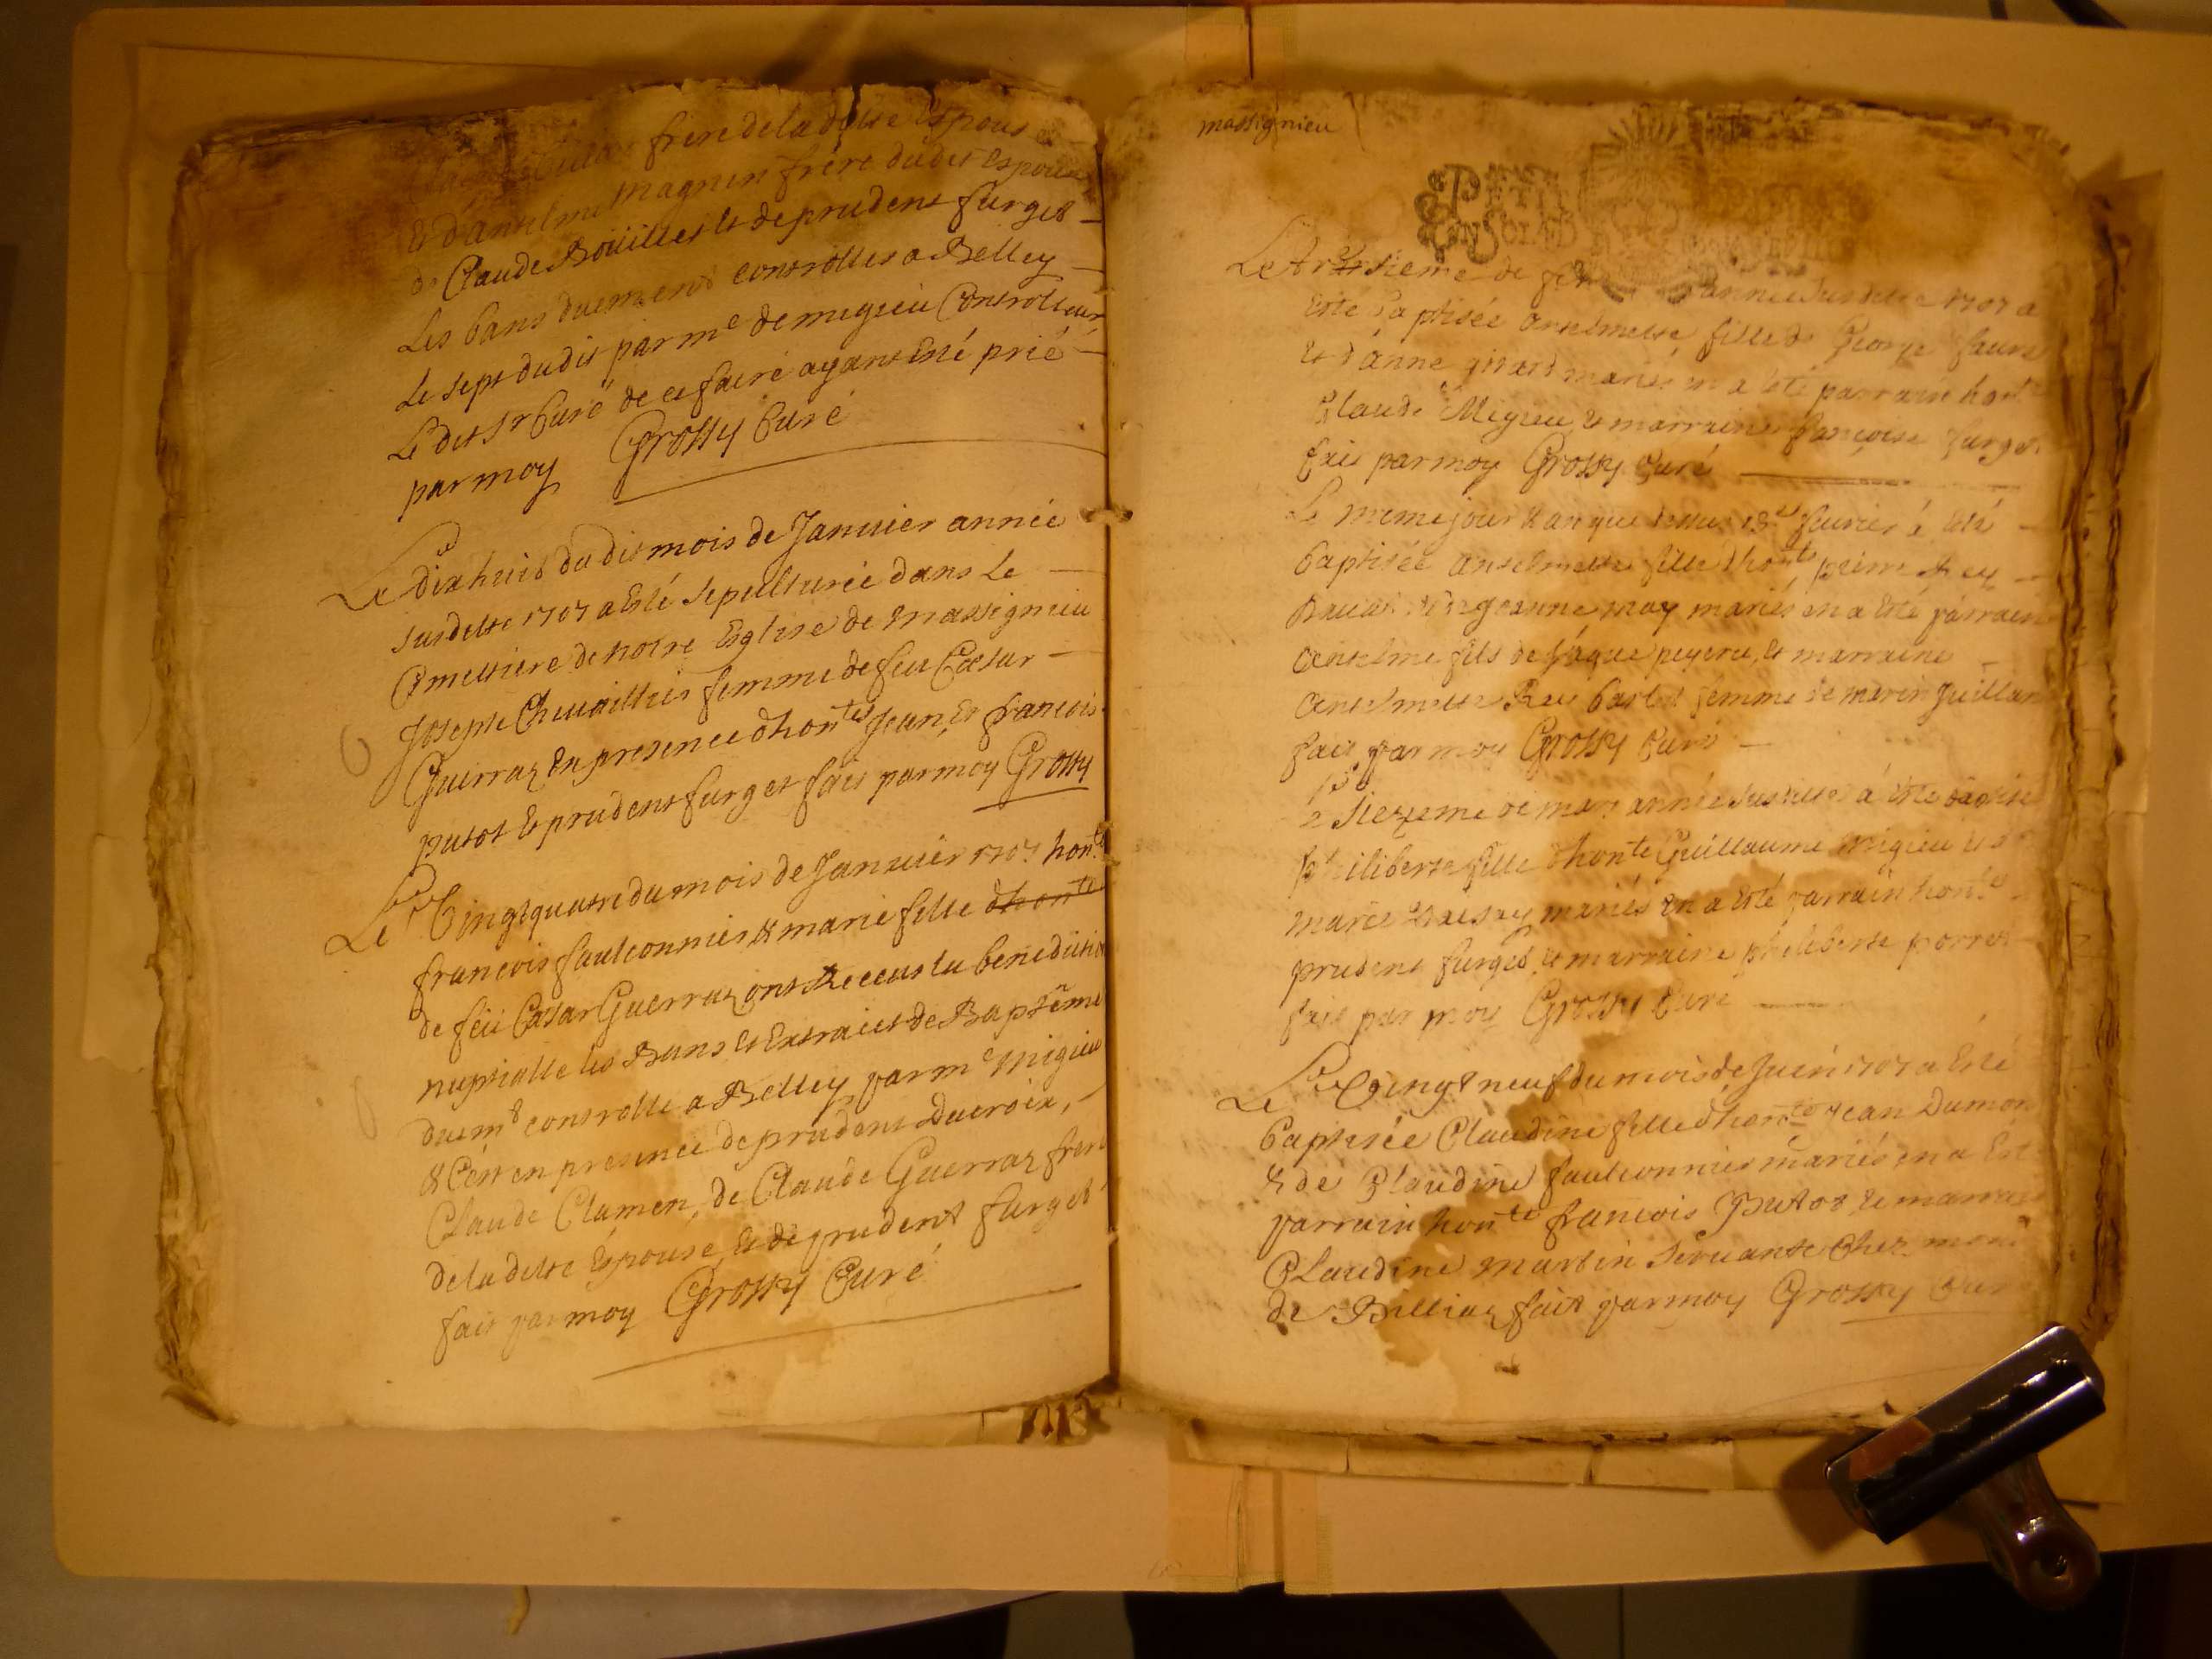 frere de la ditte Espouse
Et d'anselme magnin frere dudit Espoux
de Claude Bouillet et de prudent furget
Les bans duement controlles a Belley
Le sept dudit par me de migieu Controlleur
Le dit Sr Curé de ce faire ayant esté prié
par moy Grossy Curé
Le dixhuit du dit mois de Januier année
susditte 1707 a Esté Sepulturée dans le
Cymettiere de notre Eglise de massignieu
Joseph Cheuaillier femme de feu Cæsar
Guerraz En presence d'honles Jean, Et francois
putot Et prudent furget fait par moy Grossy
Le Vingtquatre du mois de Januier 1707 honle
francois faulconnier & marie fille d'honle
de feu Cæsar Guerraz ont Receus la benediction
nuptialle les Bans et Extraicts de Baptême
duemt controlle a Belley par me migieu
& C'est en presence de prudent Ducroix,
Claude Clamen, de Claude Guerraz frere
de la ditte Espouse, Et de prudent furget
fait par moy Grossy Curé
massignieu
année susditte 1707 a
Esté baptisée anselmette fille de George faure
Et d'anne girard mariés en a esté parrain honle
Claude Migieu, & marraine francoise furget
fait par moy Grossy Curé
Le meme jour & an que dessus feurier a Esté
baptisée anselmette fille d'honle pierre
jeanne may mariés en a Esté parrain
anselme fils de Jaque peyeru, et marraine
anselmette femme de
fait par moy Grossy Curé
mars année susditte a esté baptisée
philiberte fille d'honle Guillaume migieu
marie mariés En a Esté parrain honle
prudent furget, et marraine philiberte porret
fait par moy Grossy Curé
Le Vingt neuf du mois de Juin 1707 a Esté
baptisée Claudine fille d'honle Jean Dumon
& de Claudine faulconnier mariés en a Esté
parrain honle francois Putot & marraine
Claudine martin seruante chez
de Billiaz fait par moy Grossy Curé